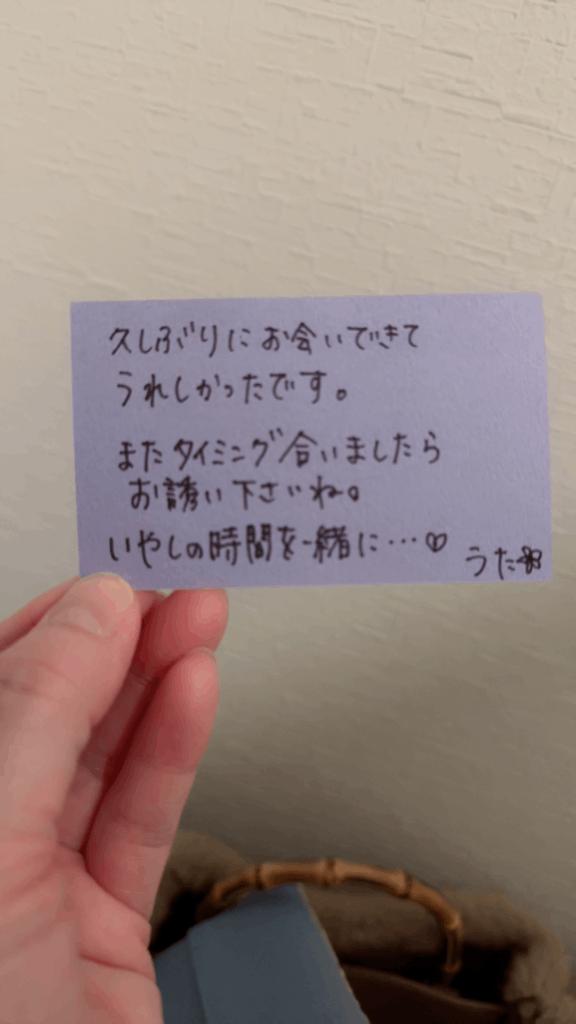 久しぶりにお会いできて
うれしかったです。
またタイミング合いましたら
お誘い下さいね。
いやしの時間を一緒に…♡
うた